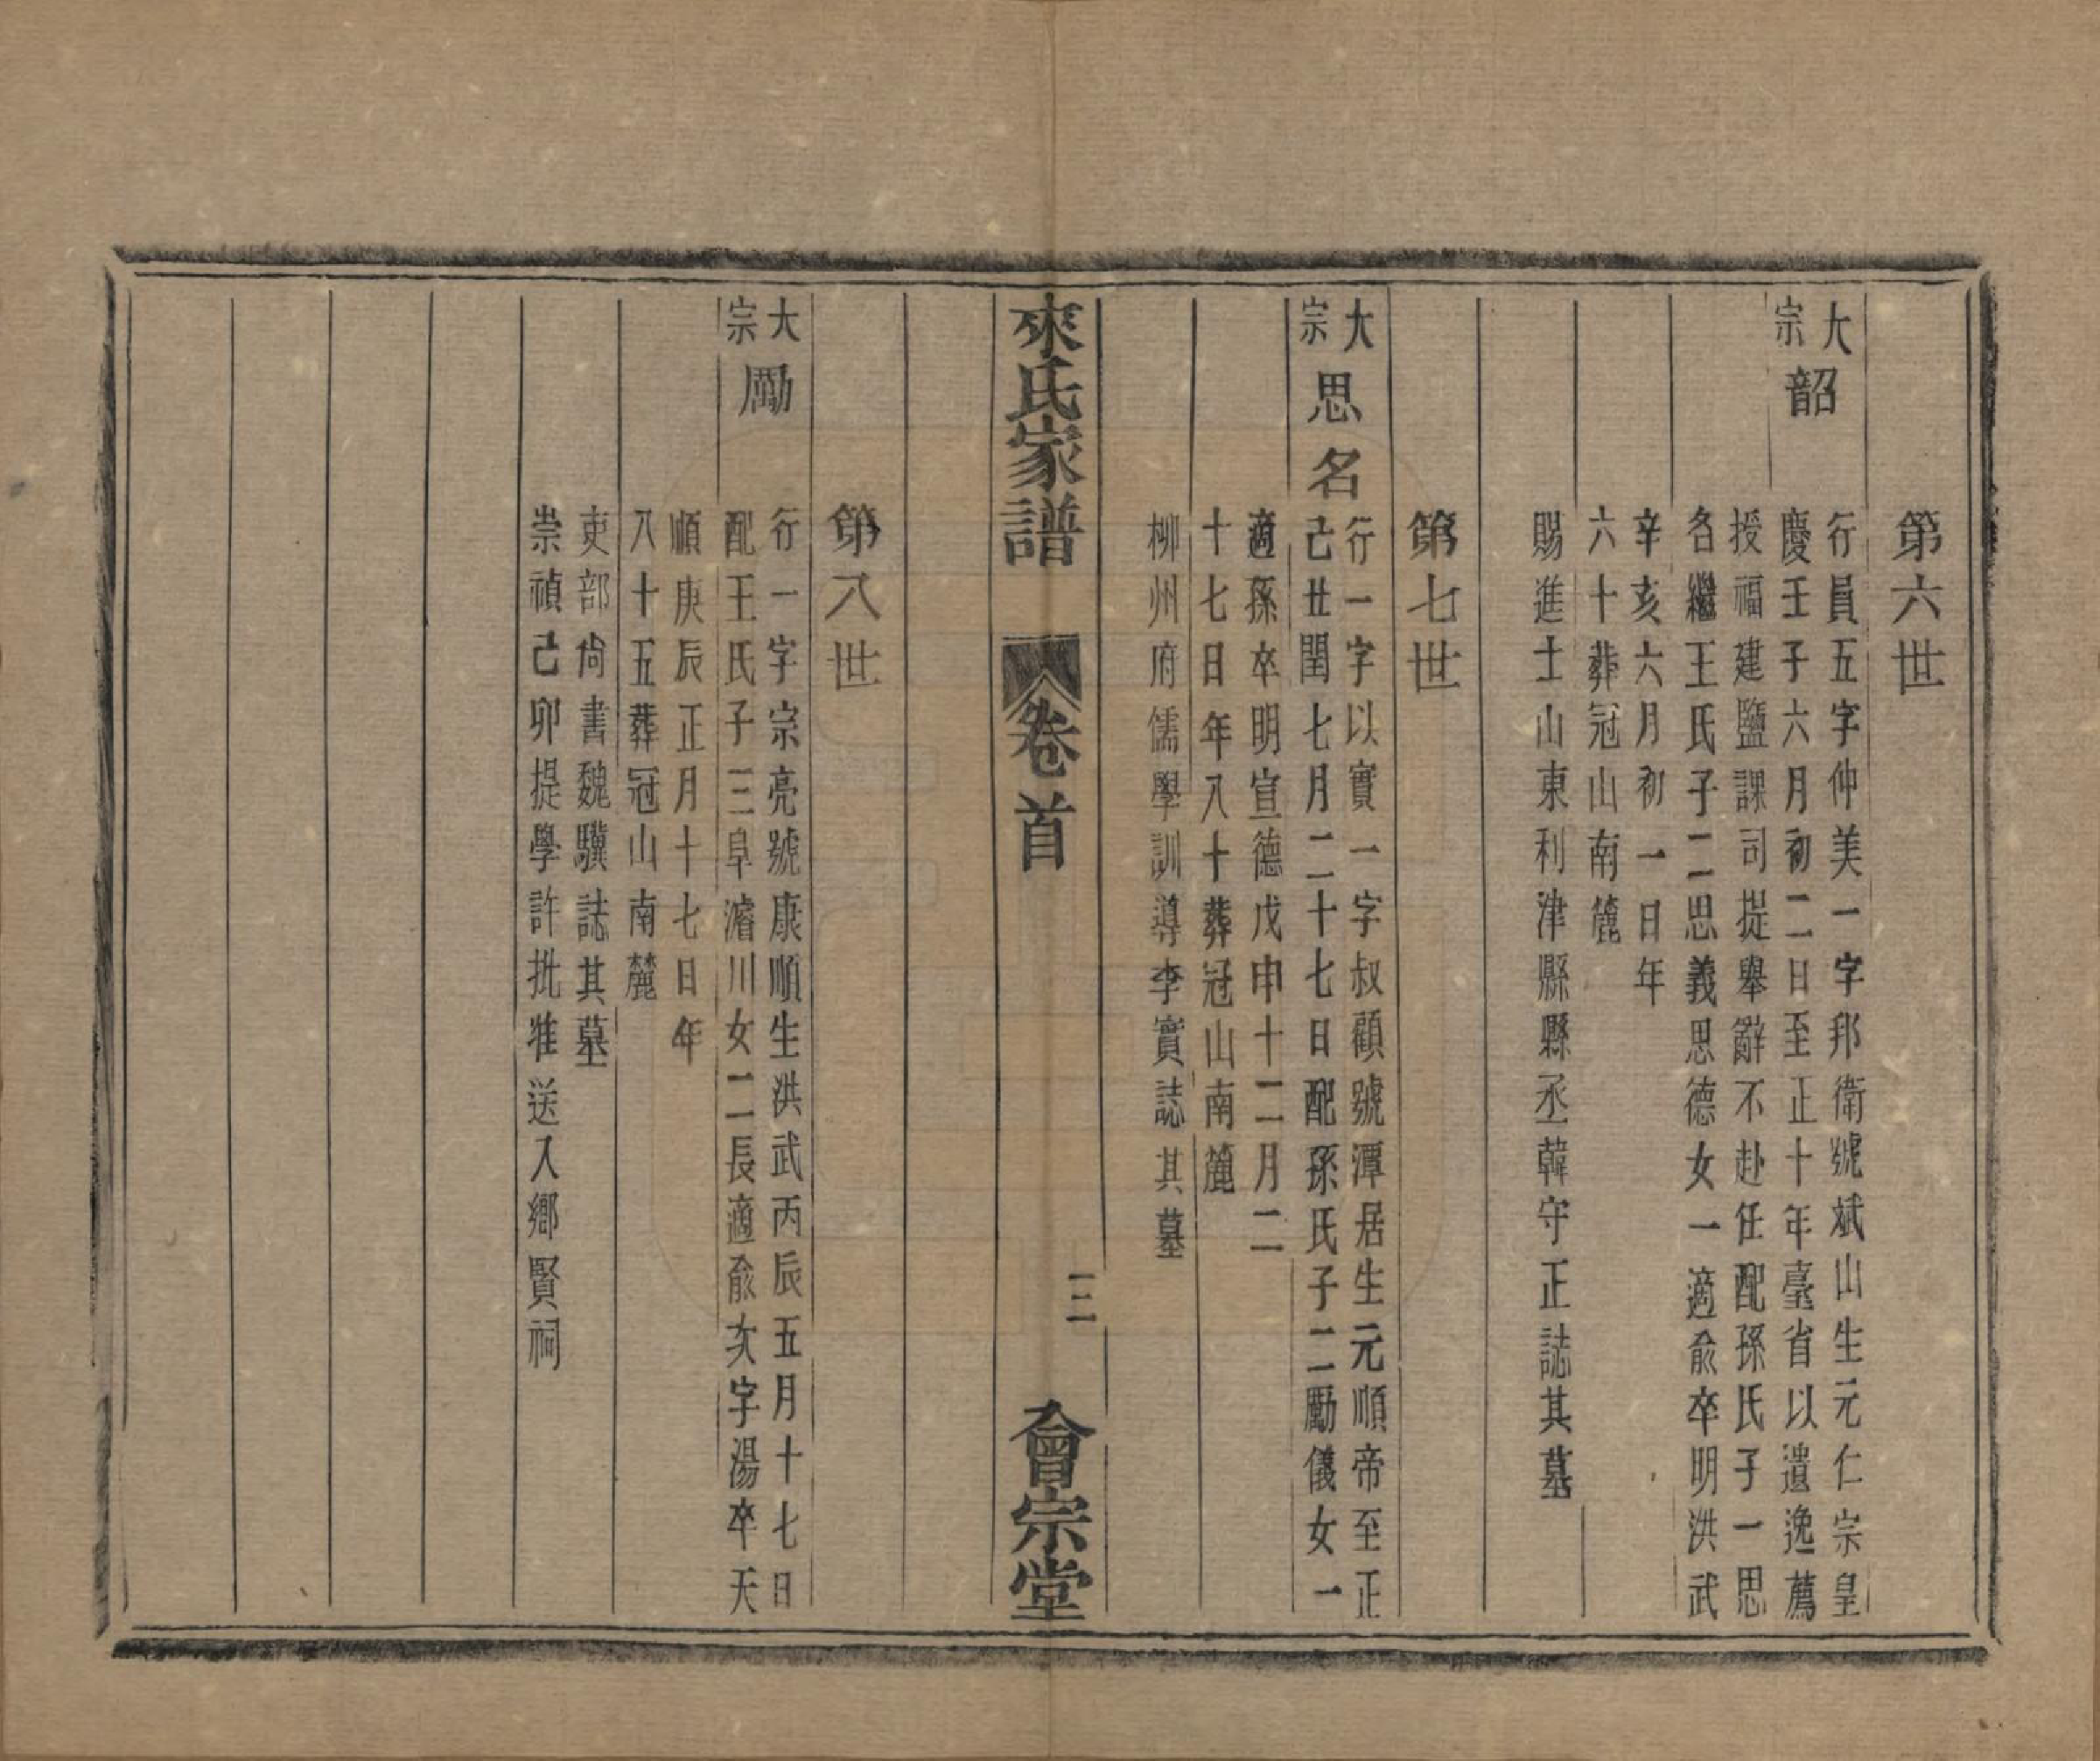 第六世
大宗 韶
行員五字仲美一字邦衛號斌山生元仁宗皇
慶壬子六月初二日至正十年臺省以遺逸薦
授福建鹽課司提舉辭不赴任配孫氏子一思
名繼王氏子二思義思德女一適兪卒明洪武
辛亥六月初一日年
六十葬冠山南麓
賜進士山東利津縣縣丞韓守正誌其墓
第七世
大宗 思名
行一字以實一字叔顧號潭居生元順帝至正
己丑閏七月二十七日配孫氏子二勵儀女一
適孫卒明宣德戊申十二月二
十七日年八十葬冠山南麓
柳州府儒學訓導李實誌其墓
來氏家譜 卷首 三 會宗堂
第八世
大宗 勵
行一字宗亮號康順生洪武丙辰五月十七日
配王氏子三阜濬川女二長適兪次字湯卒天
順庚辰正月十七日年
八十五葬冠山南麓
吏部尚書魏驥誌其墓
崇禎己卯提學許批准送入鄉賢祠